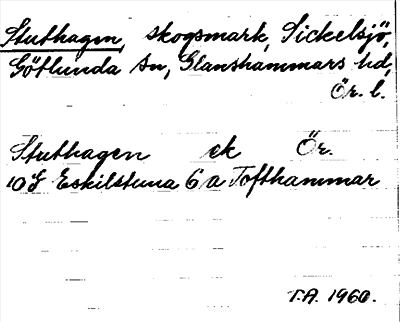 Stuthagen, skogsmark, Sickelsjö,
Götlunda sn, Glanshammars hd,
Ör. l.
Stuthagen ek Ör.
10 F Eskilstuna 6 a Tofthammar
T.A. 1960.